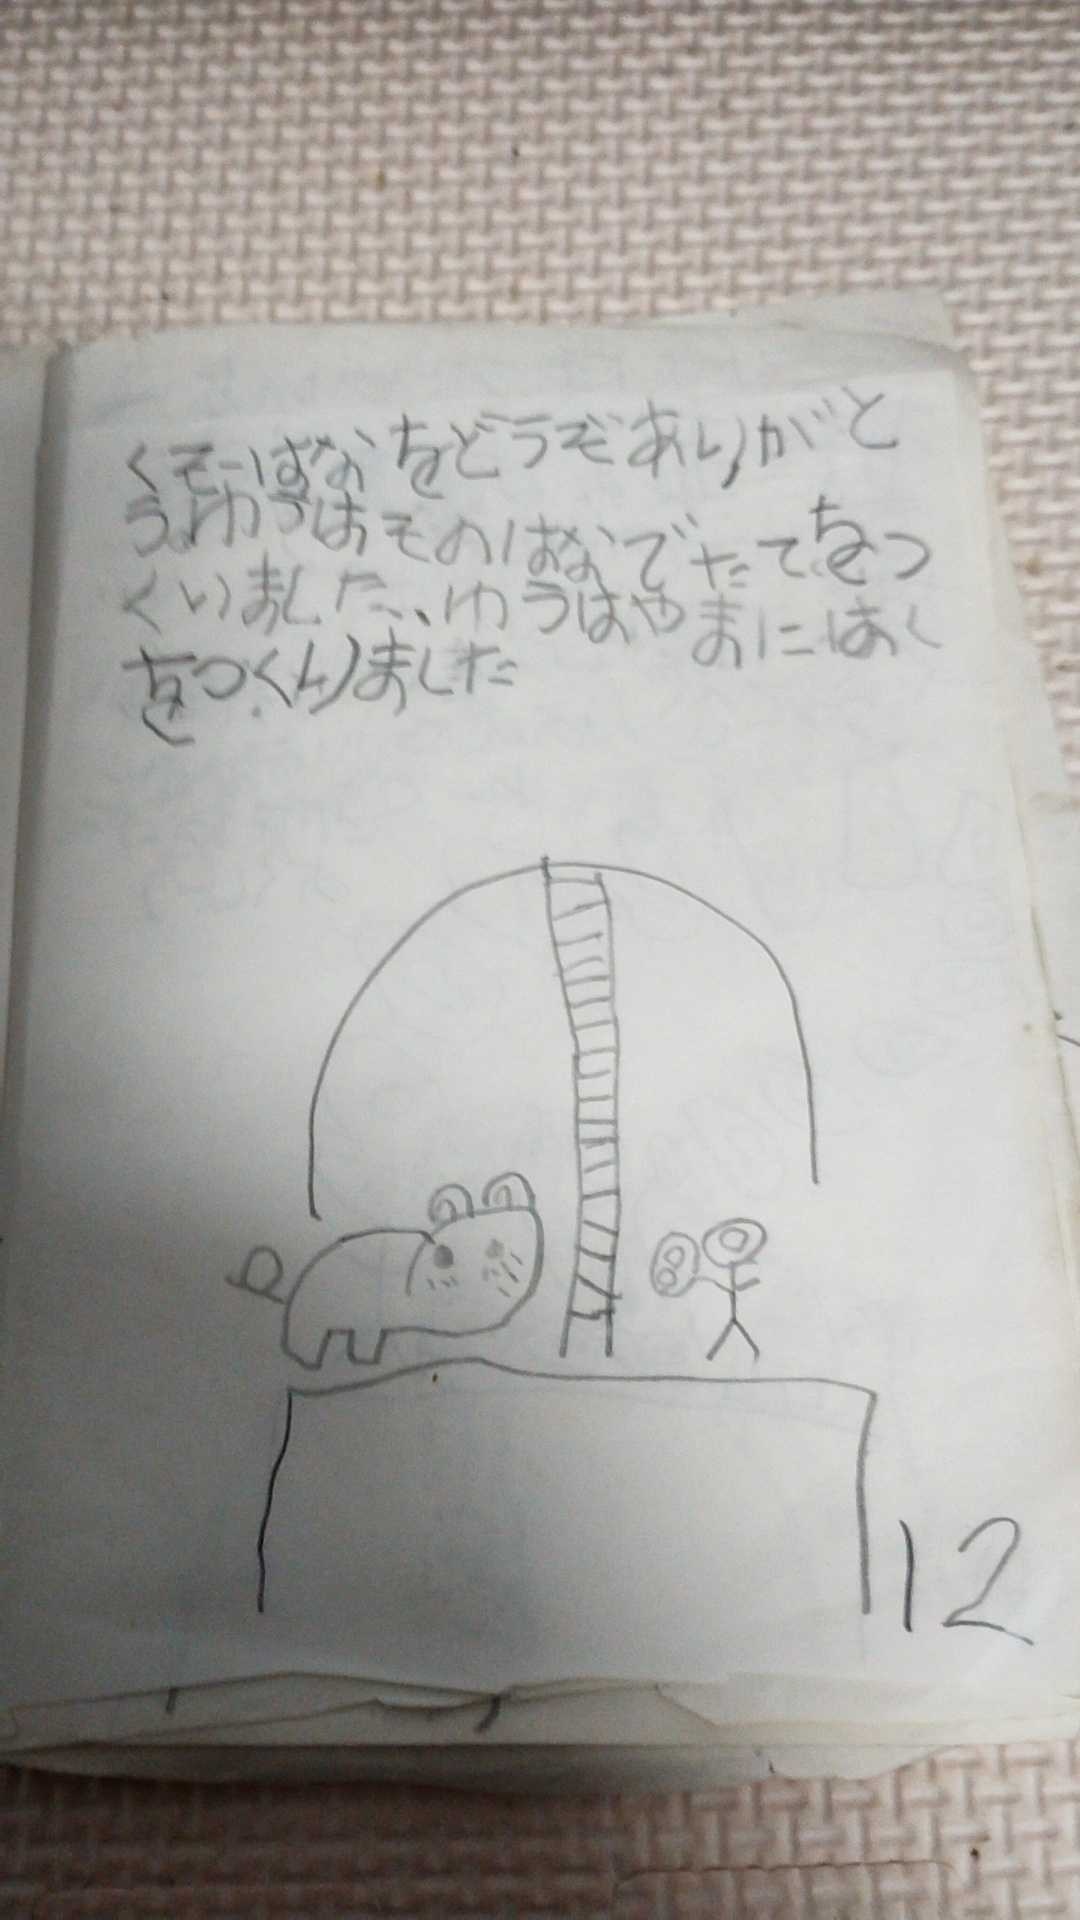 くそーはなをどうぞありがと
うゆうはそのはなでたてをつ
くいました、ゆうはやまにはく
をつくりました
12